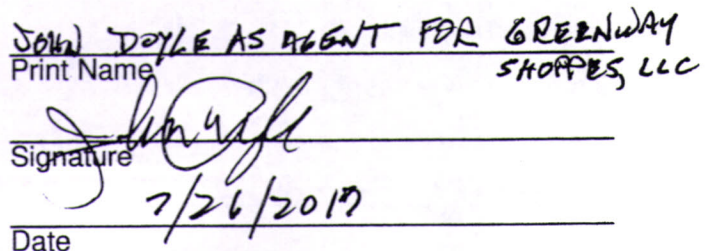 JOHN DOYLE AS AGENT FOR GREENWAY
SHOPPES, LLC
Print Name
John Doyle
Signature
7/26/2017
Date